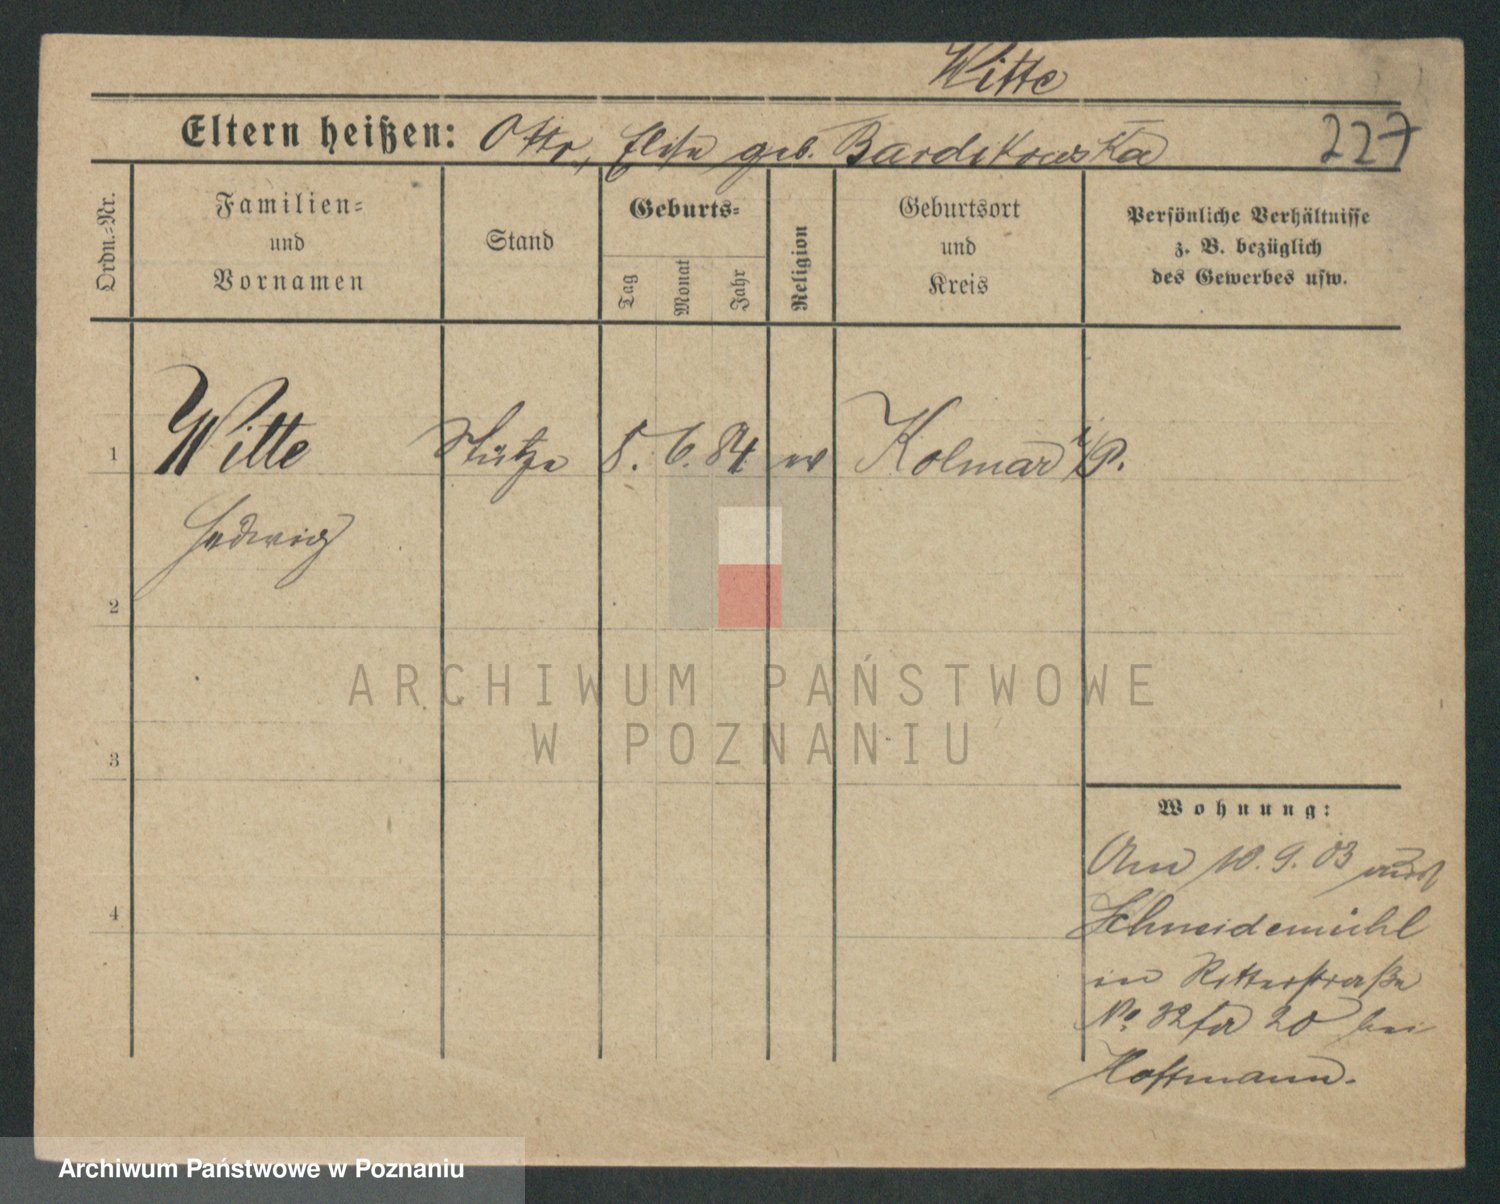 Witte
Eltern heißen: Otto, Elise geb. Bardikowska
227
Ordn.-Nr.
Familien-
und
Vornamen
Stand
Geburts-
Tag
Monat
Jahr
Religion
Geburtsort
und
Kreis
Persönliche Verhältnisse
z. B. bezüglich
des Gewerbes usw.
1 Witte Stütze 8. 6. 84 Kolmar i/P.
Hedwig
2
3
4
ARCHIWUM PAŃSTWOWE
W POZNANIU
Wohnung:
Am 10. 9. 03
Schneidemühl
in Ritterstraße
No. 20 bei
Hoffmann.
Archiwum Państwowe w Poznaniu